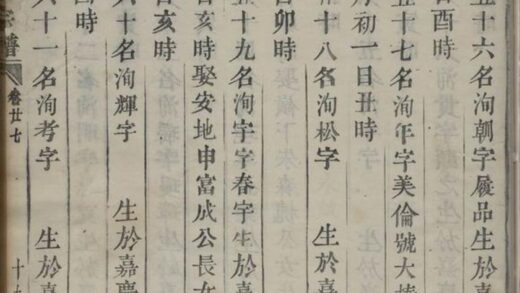 五十六名洵朝字履品生於嘉
酉時
五十七名洵年字美倫號大
月初一日丑時
十八名洵松字　生於嘉
卯時
五十九名洵宇字春字生於嘉
亥時娶安地申富成公長女
亥時
六十名洵輝字　生於嘉慶
六十一名洵考字　生於嘉
宗譜
卷廿七